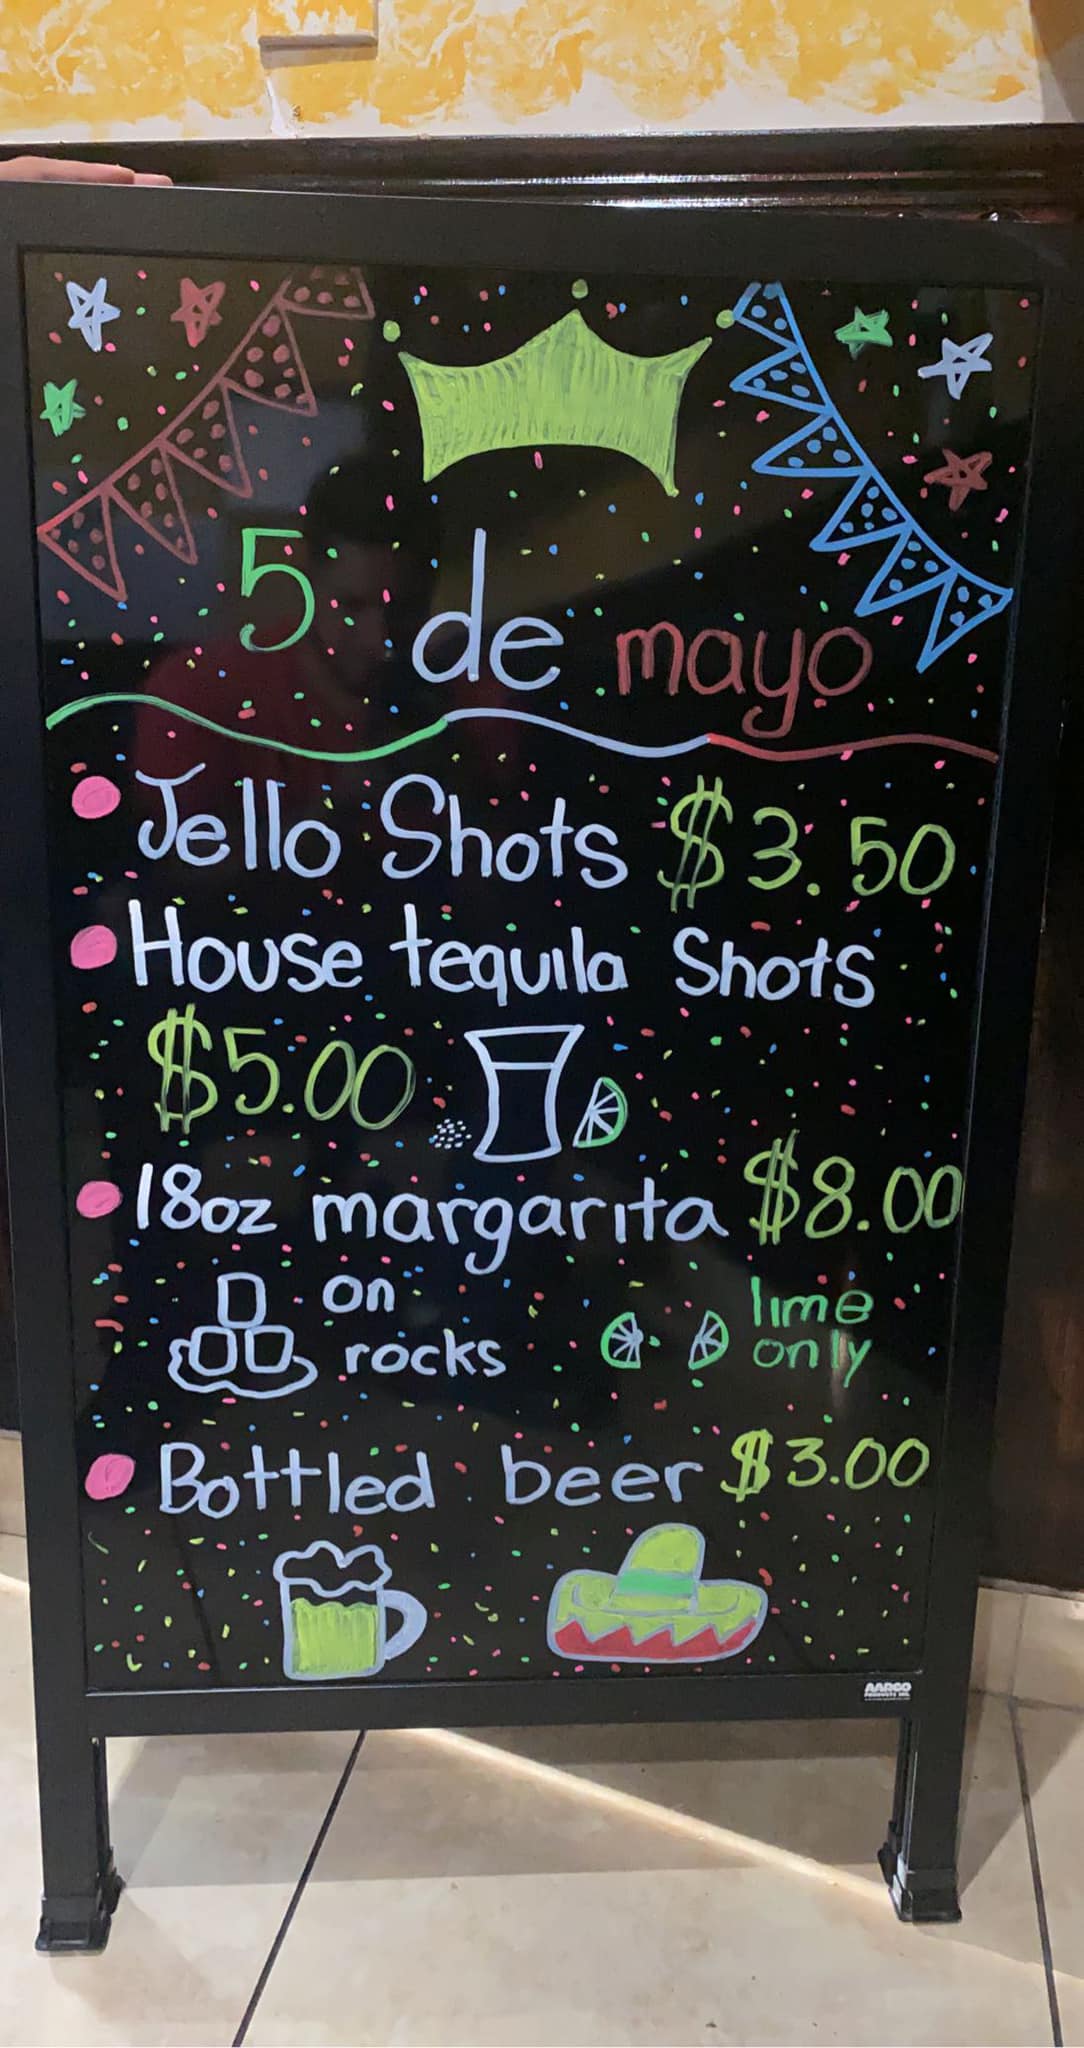 5 de mayo
Jello Shots $3.50
House tequila Shots
$5.00
18oz margarita $8.00
on
rocks
lime
only
Bottled beer $3.00
AARCO
PRODUCTS INC.